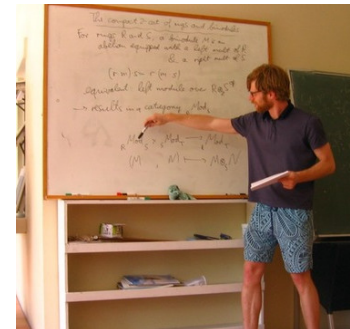 The compact 2-cat of rings and bimodules
For rings R and S, a bimodule M is an
abelian equipped with a left mult of R
& a right mult of S
(r m) s = r (m s)
equivalent left module over R⊗S^op
→ results in a category Mod
Mod × Mod → Mod
(M , N) ↦ M⊗N